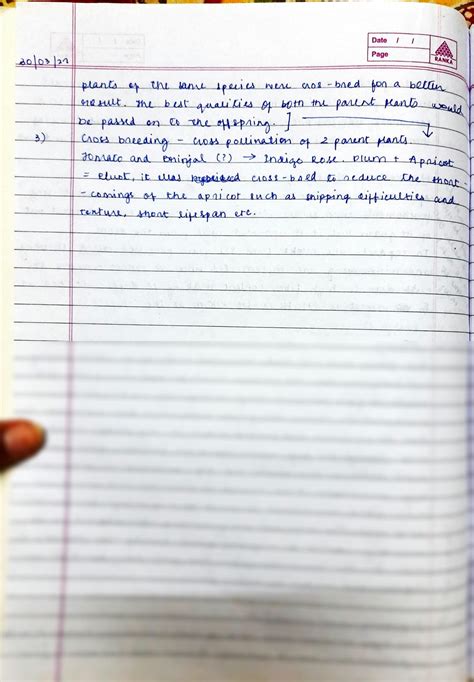 Date / /
Page
RANKA
plants of the same species were cros-bred for a better
result. The best qualities of both the parent plants would
be passed on to the offspring. ]
3) Cross breeding - cross pollination of 2 parent plants.
Tomato and Brinjal (?) → Indigo Rose. Plum + Apricot
= Pluot, it was cross-bred to reduce the short
-comings of the apricot such as shipping difficulties and
texture, short lifespan etc.